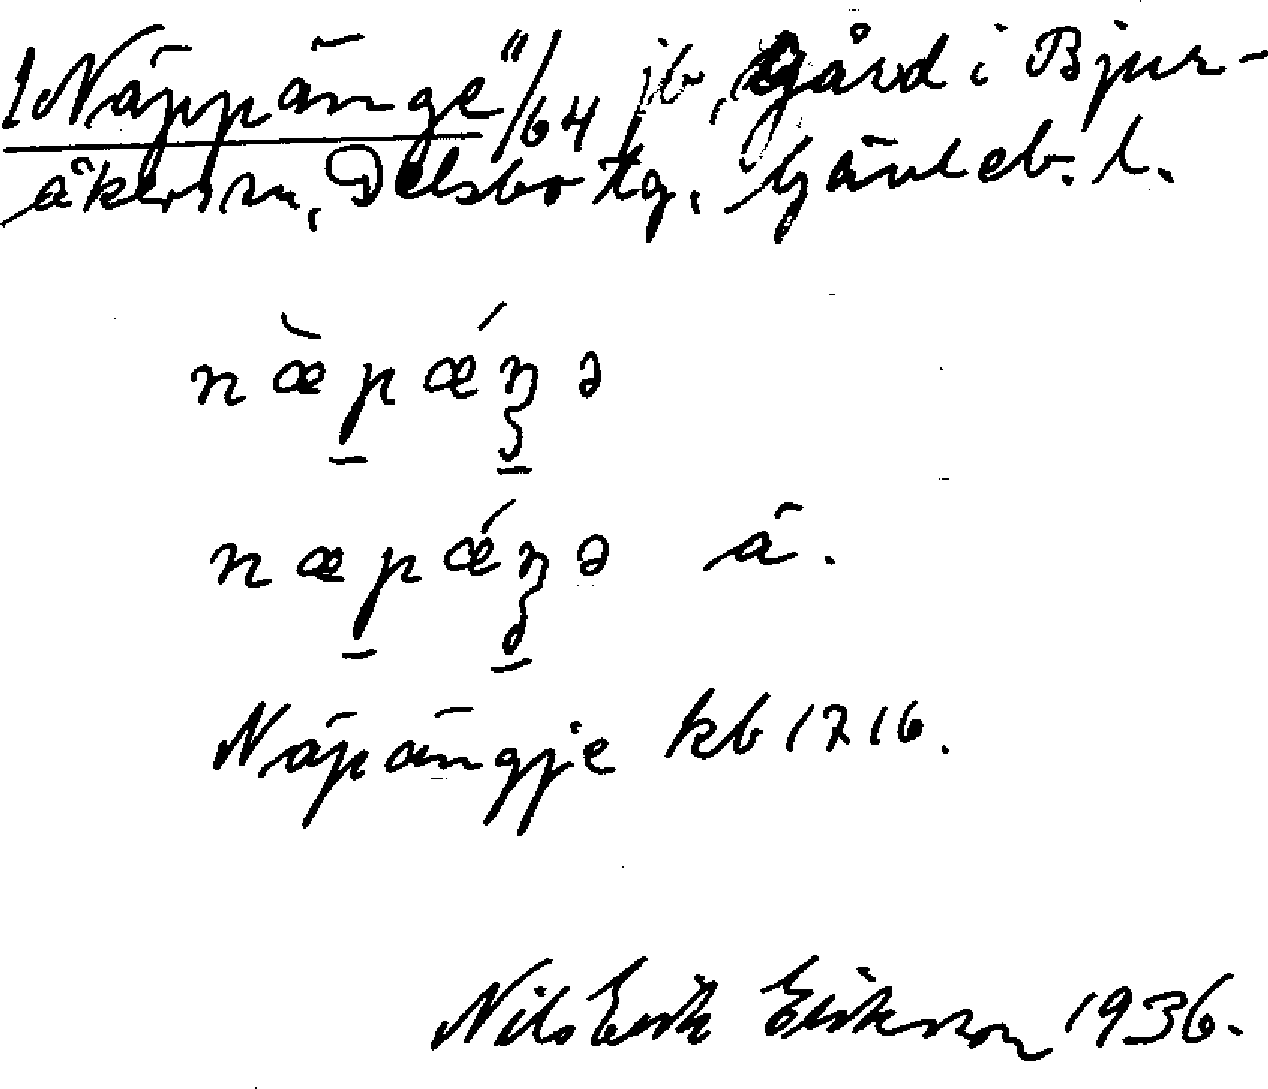 1 Näppänge 11/64 jb, gård i Bjur-
åkers sn, Delsbo tg, Gävleb. l.
næ̀pǽŋə
næpǽŋə ä.
Näpängje kb 1716.
Nils Erik Erikson 1936.